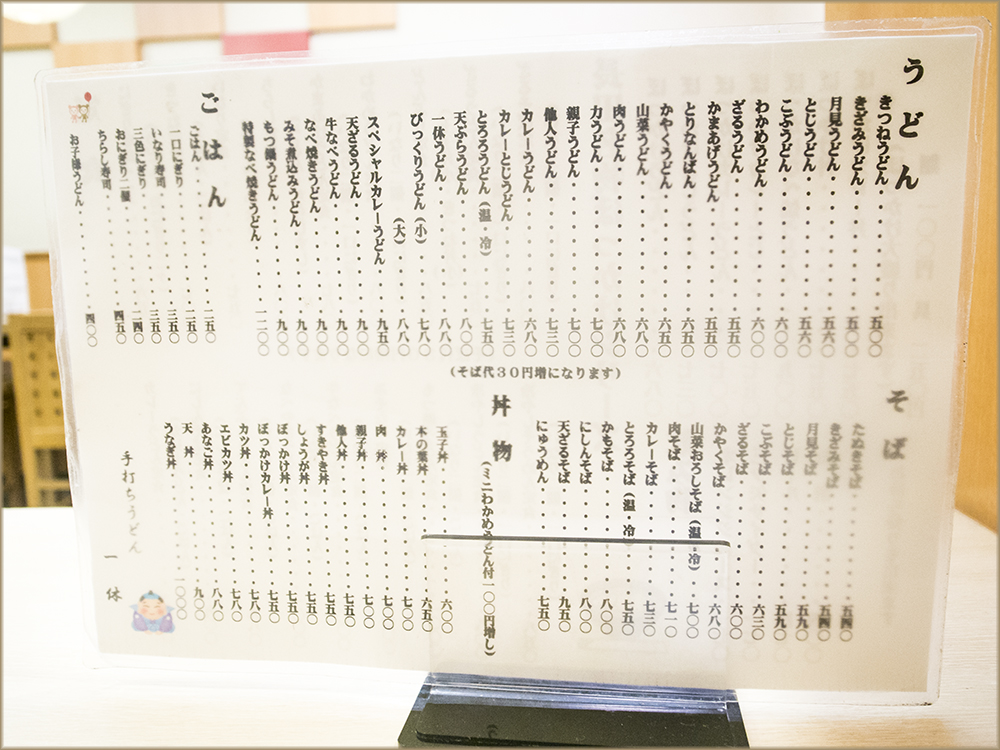 うどん
きつねうどん・・・・・・五〇〇
きざみうどん・・・・・・五〇〇
月見うどん・・・・・・五六〇
とじうどん・・・・・・五六〇
こぶうどん・・・・・・六〇〇
わかめうどん・・・・・・六〇〇
ざるうどん・・・・・・五五〇
かまあげうどん・・・・・・五五〇
とりなんばん・・・・・・六五〇
かやくうどん・・・・・・六五〇
山菜うどん・・・・・・六八〇
肉うどん・・・・・・六八〇
力うどん・・・・・・七〇〇
親子うどん・・・・・・七〇〇
他人うどん・・・・・・七三〇
カレーうどん・・・・・・六八〇
カレーとじうどん・・・・・・七三〇
とろろうどん（温・冷）・・・・・・七五〇
天ぷらうどん・・・・・・八〇〇
一休うどん・・・・・・八八〇
びっくりうどん（小）・・・・・・七八〇
（大）・・・・・・八八〇
スペシャルカレーうどん・・・・・・九五〇
天ざるうどん・・・・・・九〇〇
牛なべうどん・・・・・・九〇〇
なべ焼きうどん・・・・・・九〇〇
みそ煮込みうどん・・・・・・九〇〇
もつ鍋うどん・・・・・・九〇〇
特製なべ焼きうどん・・・・・・一二〇〇
ごはん
ごはん・・・・・・二五〇
一口にぎり・・・・・・一五〇
いなり寿司・・・・・・三五〇
三色にぎり・・・・・・三五〇
おにぎり二個・・・・・・二四〇
ちらし寿司・・・・・・四五〇
お子様うどん・・・・・・四〇〇
（そば代３０円増になります）
そば
たぬきそば・・・・・・五四〇
きざみそば・・・・・・五四〇
月見そば・・・・・・五九〇
とじそば・・・・・・五九〇
こぶそば・・・・・・六三〇
ざるそば・・・・・・六〇〇
かやくそば・・・・・・六八〇
山菜おろしそば（温・冷）・・・・・・七〇〇
肉そば・・・・・・七一〇
カレーそば・・・・・・七三〇
とろろそば（温・冷）・・・・・・七五〇
かもそば・・・・・・八〇〇
にしんそば・・・・・・八〇〇
天ざるそば・・・・・・九五〇
にゅうめん・・・・・・七五〇
丼物（ミニわかめうどん付一〇〇円増し）
玉子丼・・・・・・六〇〇
木の葉丼・・・・・・六五〇
カレー丼・・・・・・七〇〇
肉丼・・・・・・七〇〇
親子丼・・・・・・七〇〇
他人丼・・・・・・七五〇
すきやき丼・・・・・・七五〇
しょうが丼・・・・・・七五〇
ぼっかけ丼・・・・・・七五〇
ぼっかけカレー丼・・・・・・七八〇
カツ丼・・・・・・七八〇
エビカツ丼・・・・・・七八〇
あなご丼・・・・・・八八〇
天丼・・・・・・九〇〇
うなぎ丼・・・・・・一〇〇〇
手打ちうどん
一休